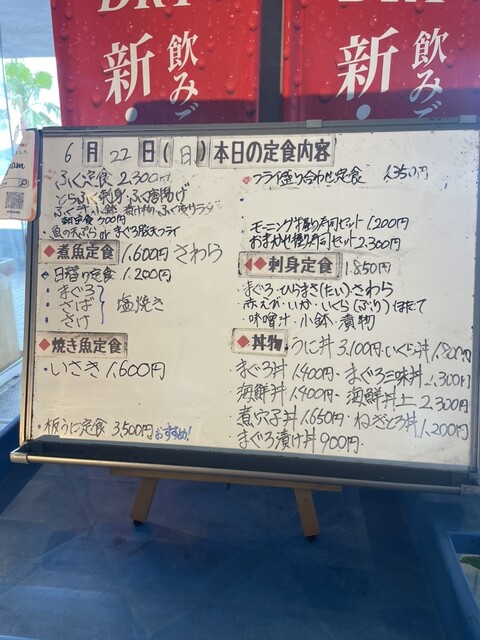 DRY
DRY
飲みご
新・
飲みご
新・
6月22日(日)本日の定食内容
・ふぐ定食 2,300円
とらふぐ刺身・ふぐ唐揚げ
・魚の天ぷら or まぐろ豚カツフライ
◆煮魚定食 1,600円 さわら
・日替り定食 1,200円
・まぐろ
・さば 塩焼き
・さけ
◆焼き魚定食
・いさき 1,600円
・板うに定食 3,500円 おすすめ!
・フライ盛り合わせ定食 1,350円
・モーニング握り寿司セット 1,200円
おまかせ握り寿司セット 2,300円
◆刺身定食 1,850円
・まぐろ・ひらまさ(たい)さわら
・赤えび・いか・いくら(ぶり)ほたて
・味噌汁・小鉢・漬物
◆丼物 うに丼 3,100円・いくら丼 1,800円
・まぐろ丼 1,400円・まぐろ三昧丼 2,300円
・海鮮丼 1,400円・海鮮丼上 2,300円
・煮穴子丼 1,650円・ねぎとろ丼 1,200円
・まぐろ漬け丼 900円